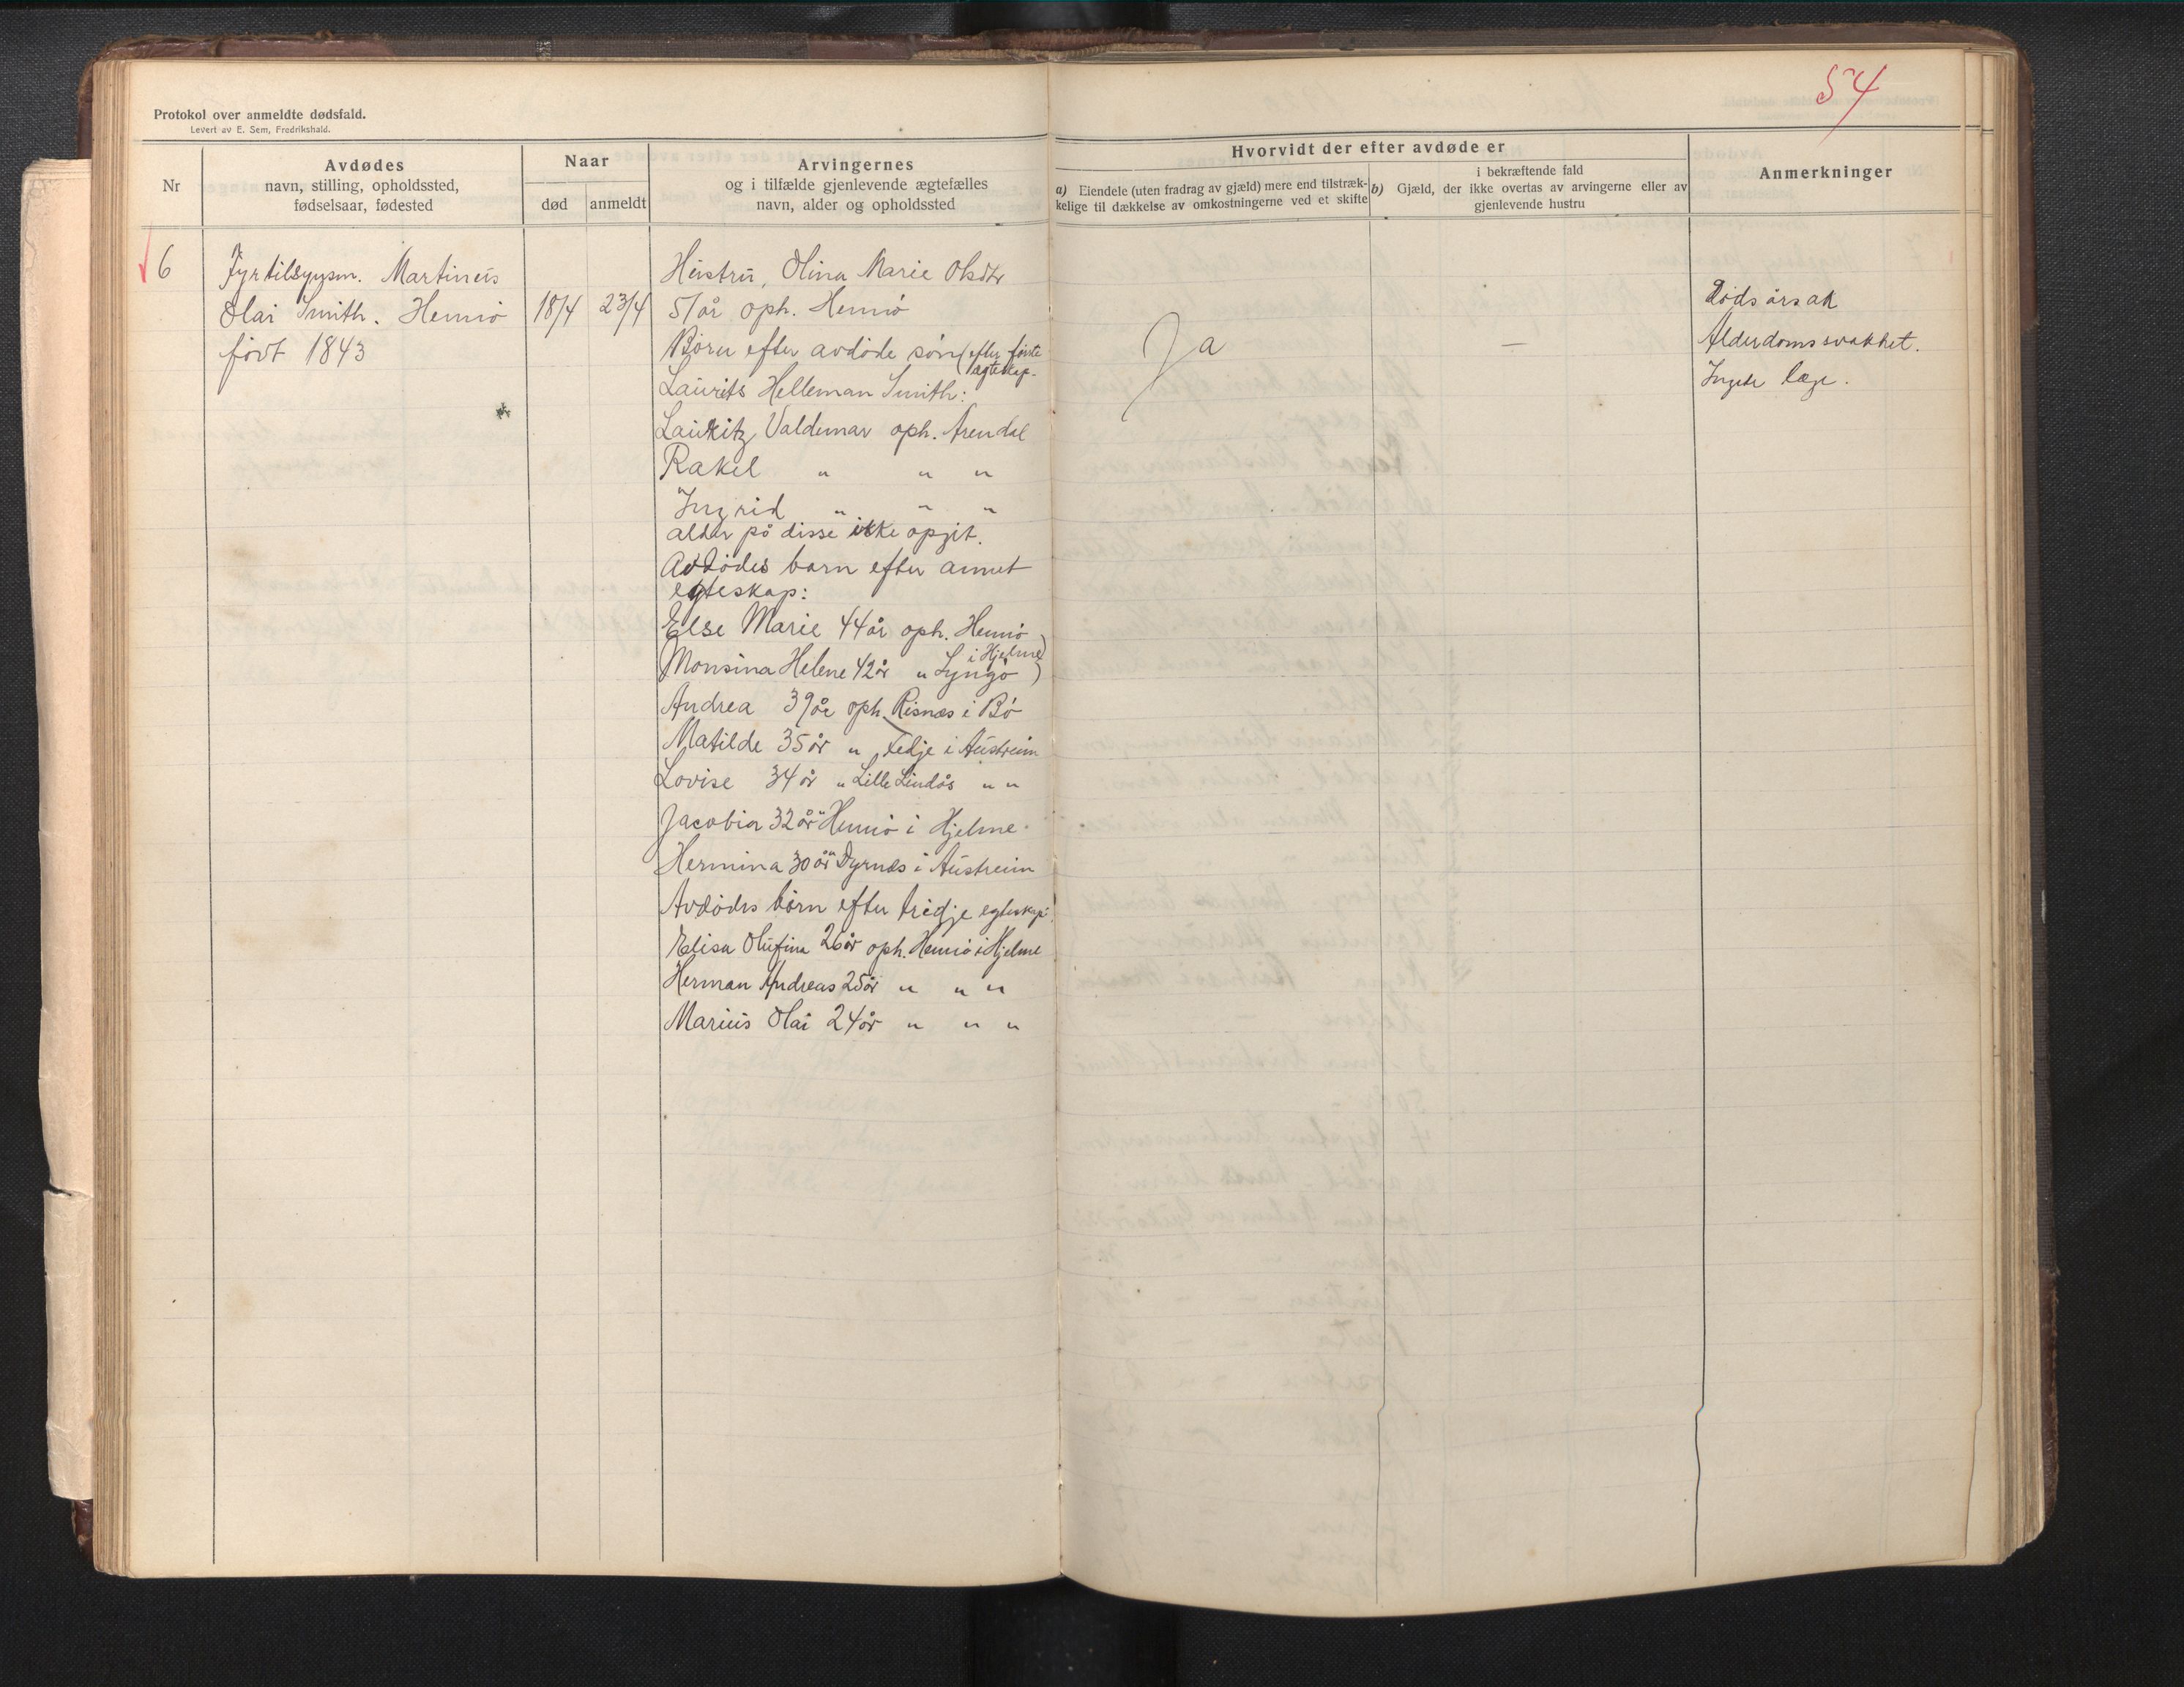 54
Protokol over anmeldte dødsfald.
Levert av E. Sem, Fredrikshald.
Nr
Avdødes
navn, stilling, opholdssted,
fødselsaar, fødested
Naar
død
anmeldt
Arvingernes
og i tilfælde gjenlevende ægtefælles
navn, alder og opholdssted
Hvorvidt der efter avdøde er
a) Eiendele (uten fradrag av gjæld) mere end tilstræk-
kelige til dækkelse av omkostningerne ved et skifte
i bekræftende fald
b) Gjæld, der ikke overtas av arvingerne eller av
gjenlevende hustru
Anmerkninger
6
Fyrtilsynsm. Martinus
Olai Smith. Hennø
født 1843
18/4
23/4
Hustru, Olina Marie Olsdtr
51 år oph. Hennø
Børn efter avdøde søn (efter første
ægteskap.
Laurits Helleman Smith:
Lauritz Valdemar oph. Arendal
Rakel " " "
Ingrid " " "
alder på disse ikke opgit.
Avdødes barn efter annet
egteskap:
Else Marie 44 år oph. Hennø
Monsina Helene 42 år " Lyngø ) i Hjelme
Andrea 39 år oph. Risnæs i Bø
Matilde 35 år " Fedje i Austreim
Lovise 34 år " Lille Lindås " "
Jacobia 32 år " Hennø i Hjelme.
Hermina 30 år " Dyrnes i Austreim
Avdødes børn efter tredje egteskap:
Elisa Olufina 26 år oph. Hennø i Hjelme
Herman Andreas 25 år " " "
Marius Olai 24 år " " "
Ja
—
Dødsårsak
Alderdomssvakhet.
Ingen læge.